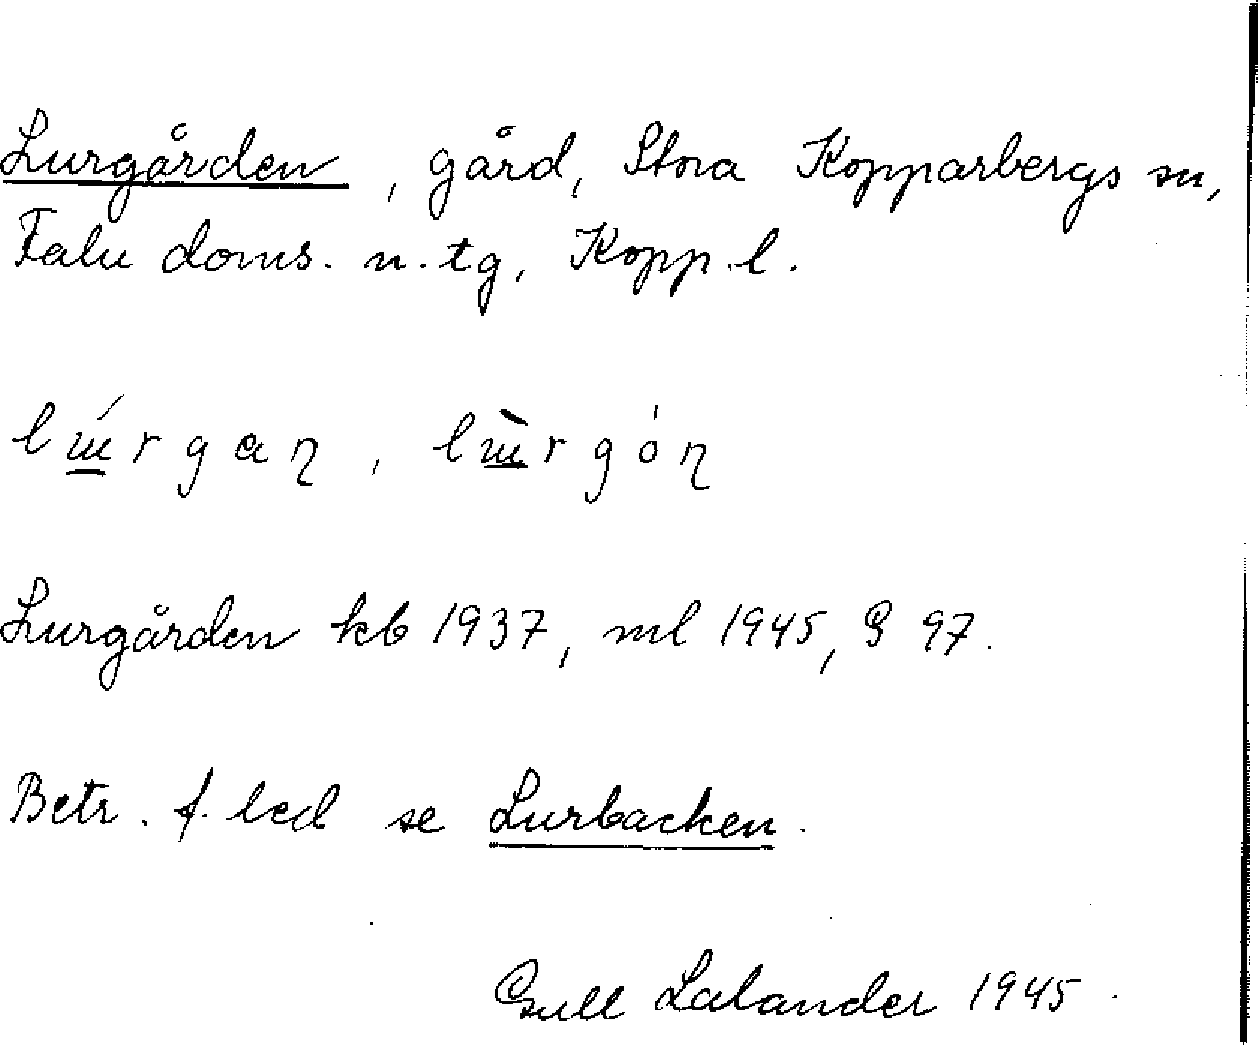 Lurgården, gård, Stora Kopparbergs sn,
Falu doms. n. tg, Kopp. l.
Lurgården kb 1937, ml 1945, § 97.
Betr. f. led se Lurbacken.
Gull Lalander 1945.